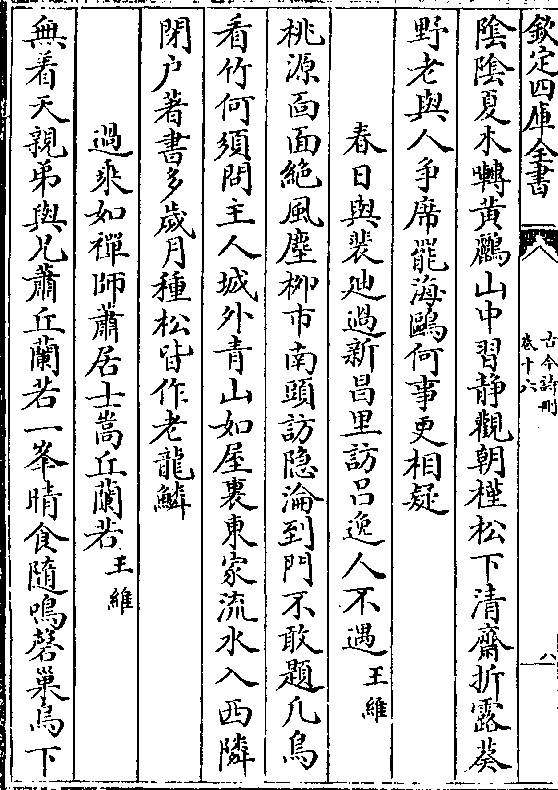 欽定四庫全書
古今詩刪
卷十六
八
陰陰夏木轉黃鸝山中習静觀朝槿松下清齋折露葵
野老與人爭席罷海鷗何事更相疑
春日與裴廸過新昌里訪吕逸人不遇王維
桃源靣靣絶風塵柳市南頭訪隐淪到門不敢題凡鳥
看竹何須問主人城外青山如屋裏東家流水入西隣
閉户著書多歲月種松皆作老龍鱗
過乘如禪師蕭居士嵩丘蘭若王維
無着天親弟與兄蕭丘蘭若一峯晴食隨鳴磬巢烏下